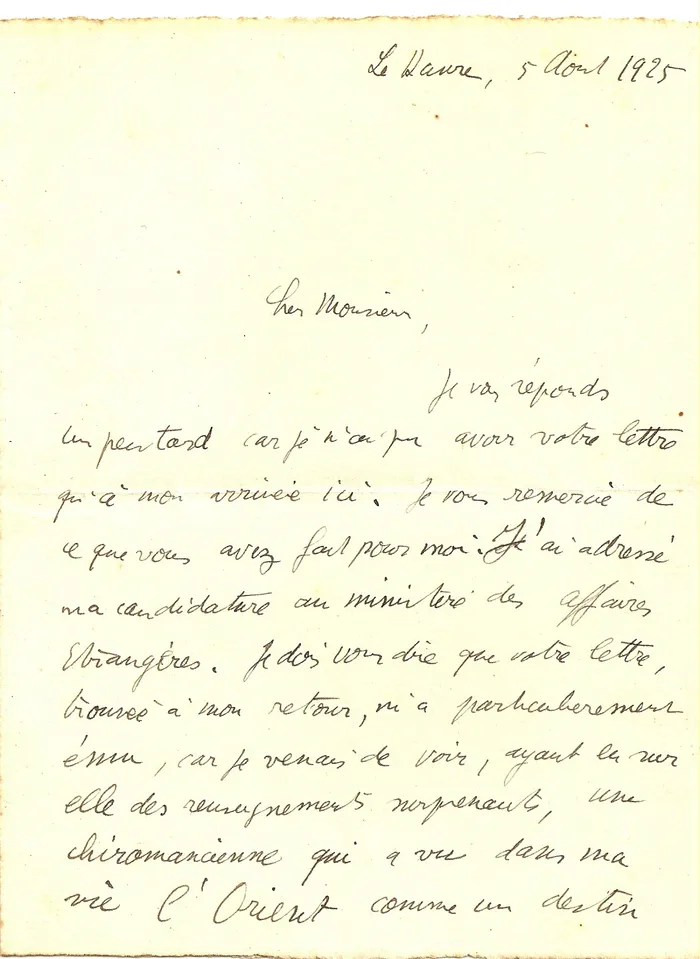 Le Havre, 5 Aout 1925
Cher Monsieur,
Je vous réponds
un peu tard car je n'ai pu avoir votre lettre
qu'à mon arrivée ici. Je vous remercie de
ce que vous avez fait pour moi. J'ai adressé
ma candidature au ministère des affaires
Etrangères. Je dois vous dire que votre lettre,
trouvée à mon retour, m'a particulièrement
ému, car je venais de voir, ayant eu sur
elle des renseignements surprenants, une
chiromancienne qui a vu dans ma
vie l'Orient comme un destin